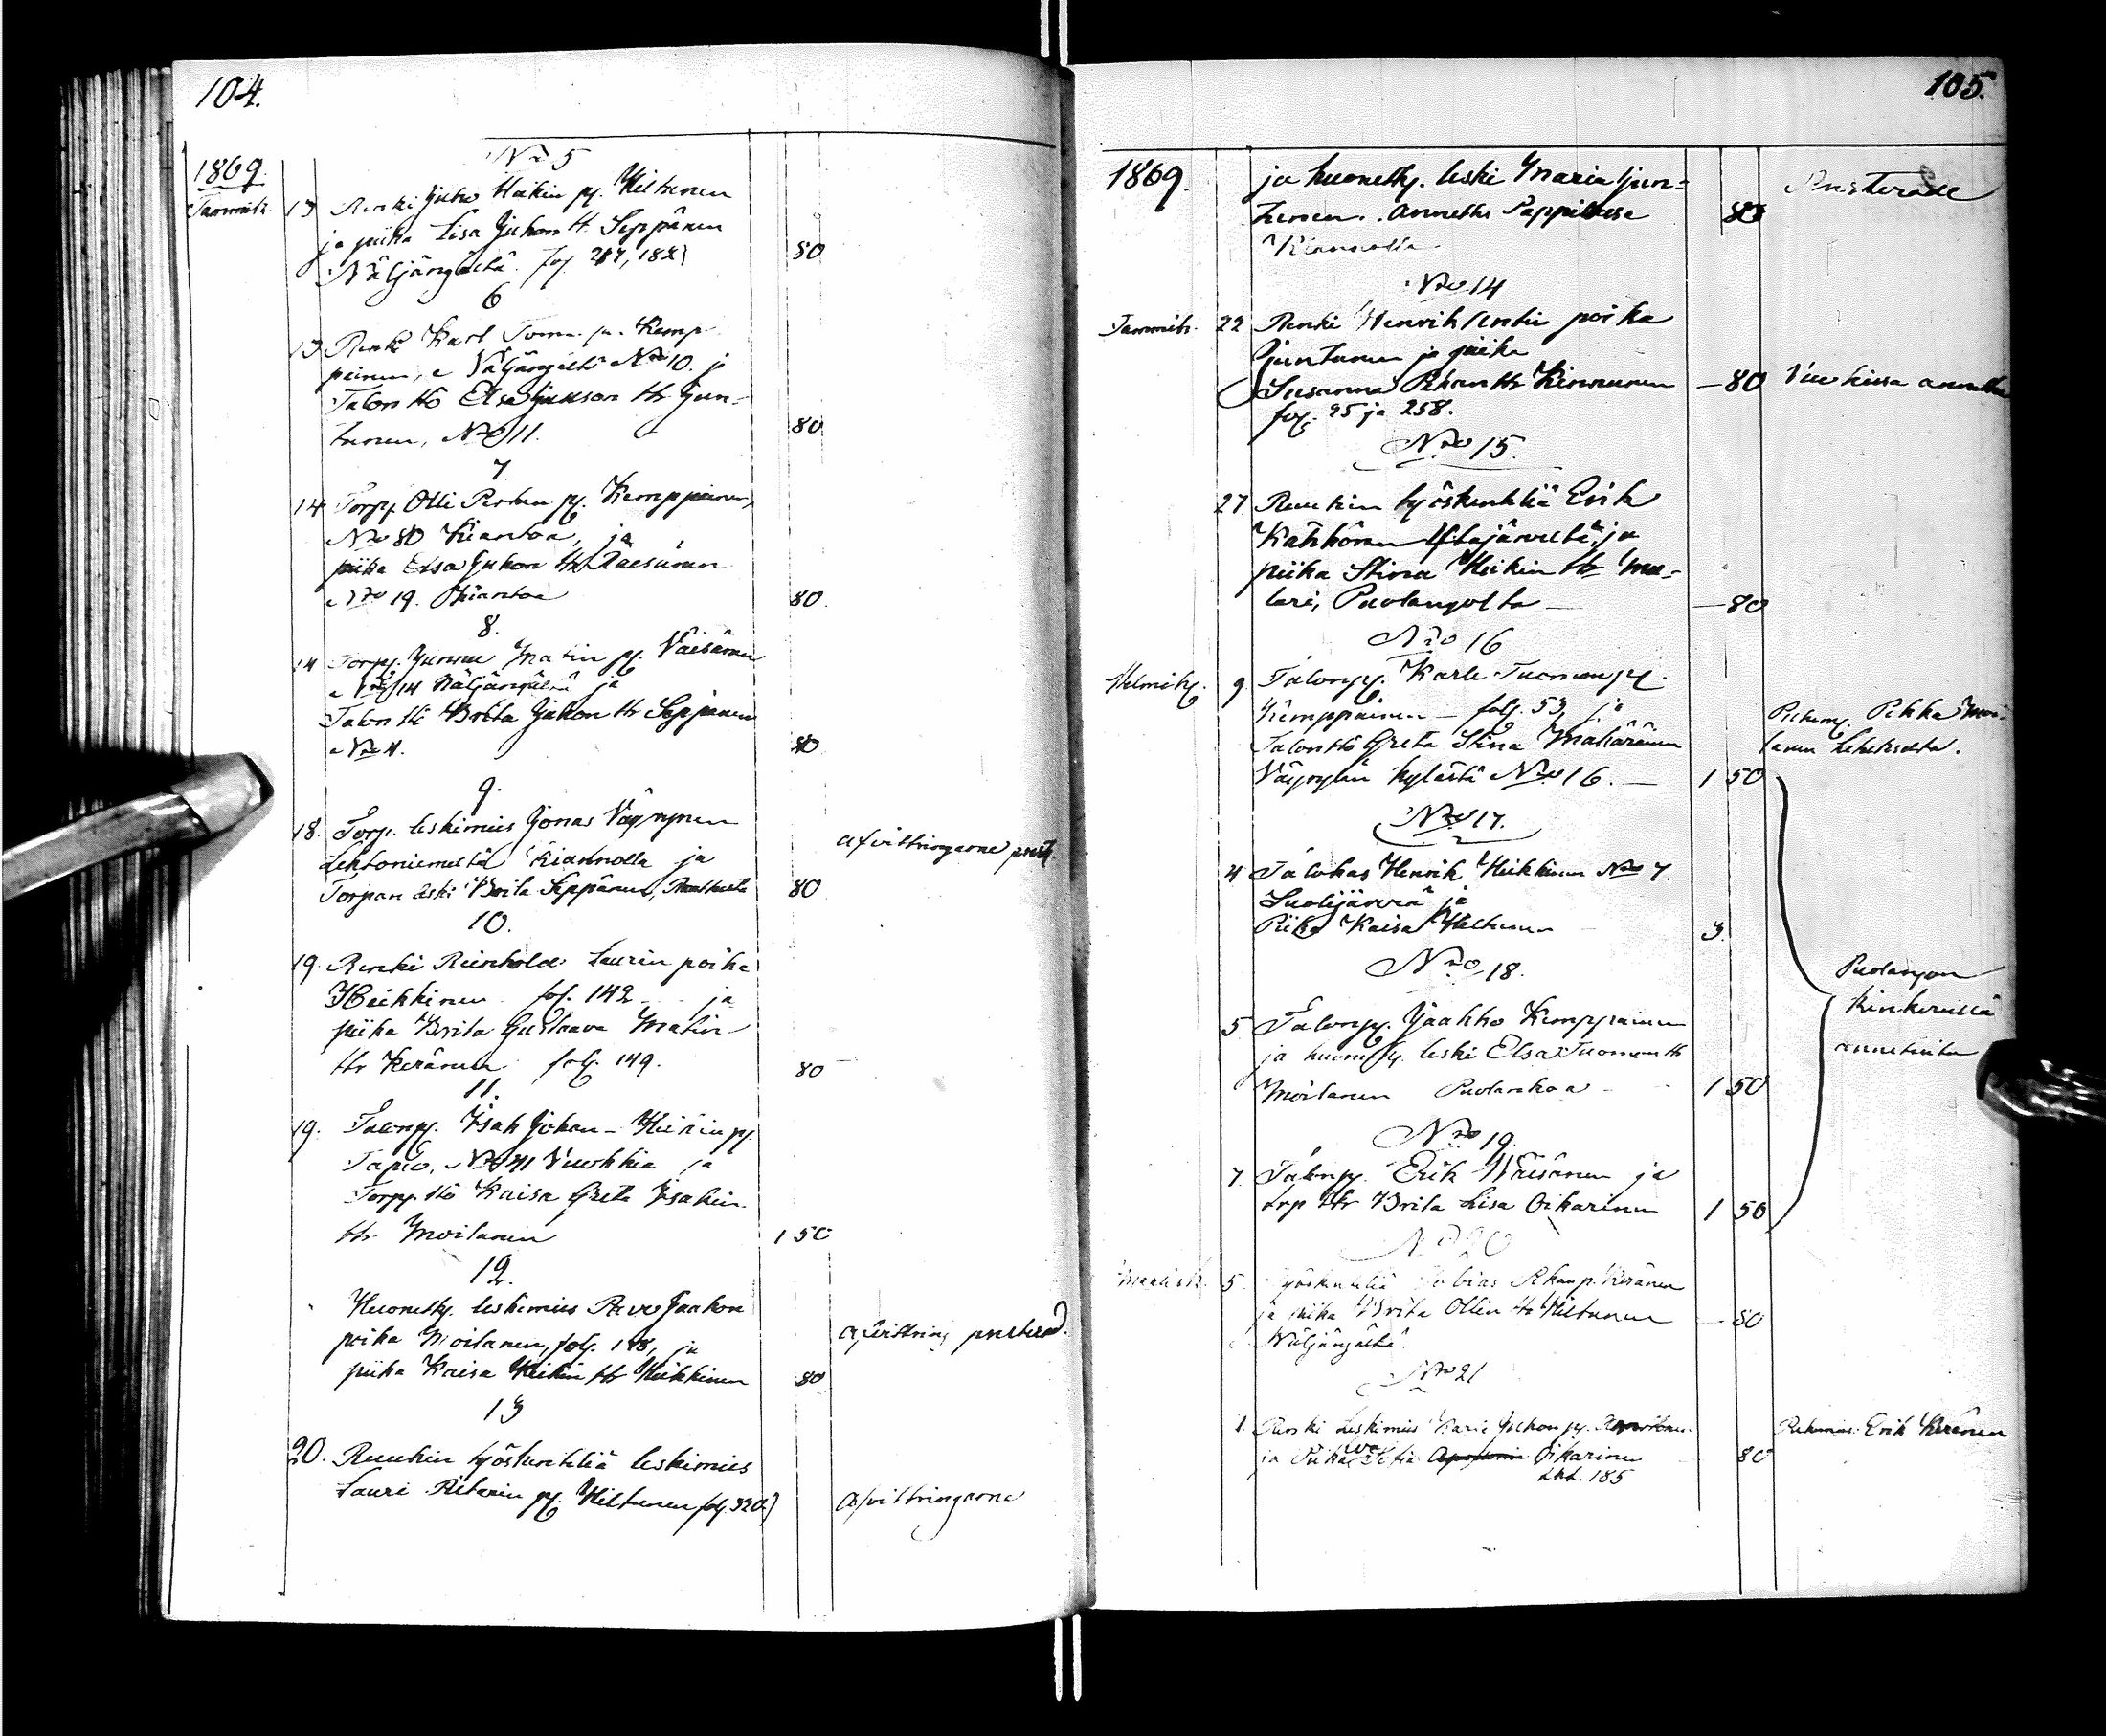 104.
1869.
No 5
Tammik. 13 Renki Juho Heikin pj. Kiltunen
ja piika Lisa Juhon tr Seppänen
Näljängältä. fol 217, 182) 80
6
13 Renki Karl Tuom. p. Kemp-
painen, Näljängältä No 10. ja
Talon ttö Elsa tr Jun-
tunen, No 11. 80
7
14 Torpp. Olli Pekan pj. Kemppainen,
No 80 Kiantaa, ja
piika Elsa Juhon tr Räesänen
No 19. Kiantaa 80.
8.
14 Torpp. Junnu Matin pj. Väisänen
No 14 Näljängältä ja
Talon ttö Brita Juhon tr Seppänen
No 4. 80
9.
18. Torp. leskimies Jonas Väyrynen
Lehtoniemestä Kiannolla ja
Torpan leski Brita Seppänen, 80
afvittringarne prest.
10.
19. Renki Reinhold Laurin poika
Heikkinen fol. 142 ja
piika Brita Gustaava Matin
tr Keränen fol. 149. 80
11.
19. Talonpj. Isak Johan Heikin pj.
Tapio, No 41 Vuokkia ja
Torpp. ttö Kaisa Greta Isakin
tr Moilanen 1 50
12.
Huonethj. leskimies Paavo Jaakon
poika Moilanen, fol. 148, ja
piika Kaisa Heikin tr Heikkinen 80
afvittring presterad.
13
20. Ruukin työskentliä leskimies
Lauri Petarin pj. Kiltunen fol. 320)
afvittringarne
105.
1869. ja huonethj. leski Maria Jun-
tunen. annettu Pappilassa 80
Kiannolla.
No 14
Tammik. 22 Renki Henrik Antin poika
Juntunen ja piika
Susanna Pekan tr Kinnunen — 80 annettu
fol. 95 ja 258.
No 15.
27 Ruukin työskentliä Erik
Kähkönen ja
piika Stina Heikin tr Mu-
lari, Puolangolta — 80
No 16
Helmik. 9 Talonpj. Karle Tuomon pj.
Kemppainen — fol. 53, ja
Talonttö Greta Stina Määräinen
Väyrylän kylästä No 16. — 1 50
Pekka Moi-
lanen
No 17.
4 Talokas Henrik Heikkinen No 7.
Suolijärvi ja
Piika Kaisa Kiltunen 3.
No 18.
5 Talonpj. Jaakko Kemppainen
ja huonethj. leski Elsa Tuomon tr
Moilanen Puolankoa 1 50
Puolangon
kinkereillä
annetuita
No 19.
7. Talonpj. Erik Väisänen ja
trp tr Brita Lisa Oikarinen 1 50
No 20
Maalisk. 5. Työskentliä Tobias Pekan p. Keränen
ja piika Brita Ollin tr Kiltunen — 80
Näljängältä.
No 21
1 Renki Leskimies Karle Juhon pj.
ja Piika Eva Sofia Oikarinen 80
Lkk. 185
Erik Keränen